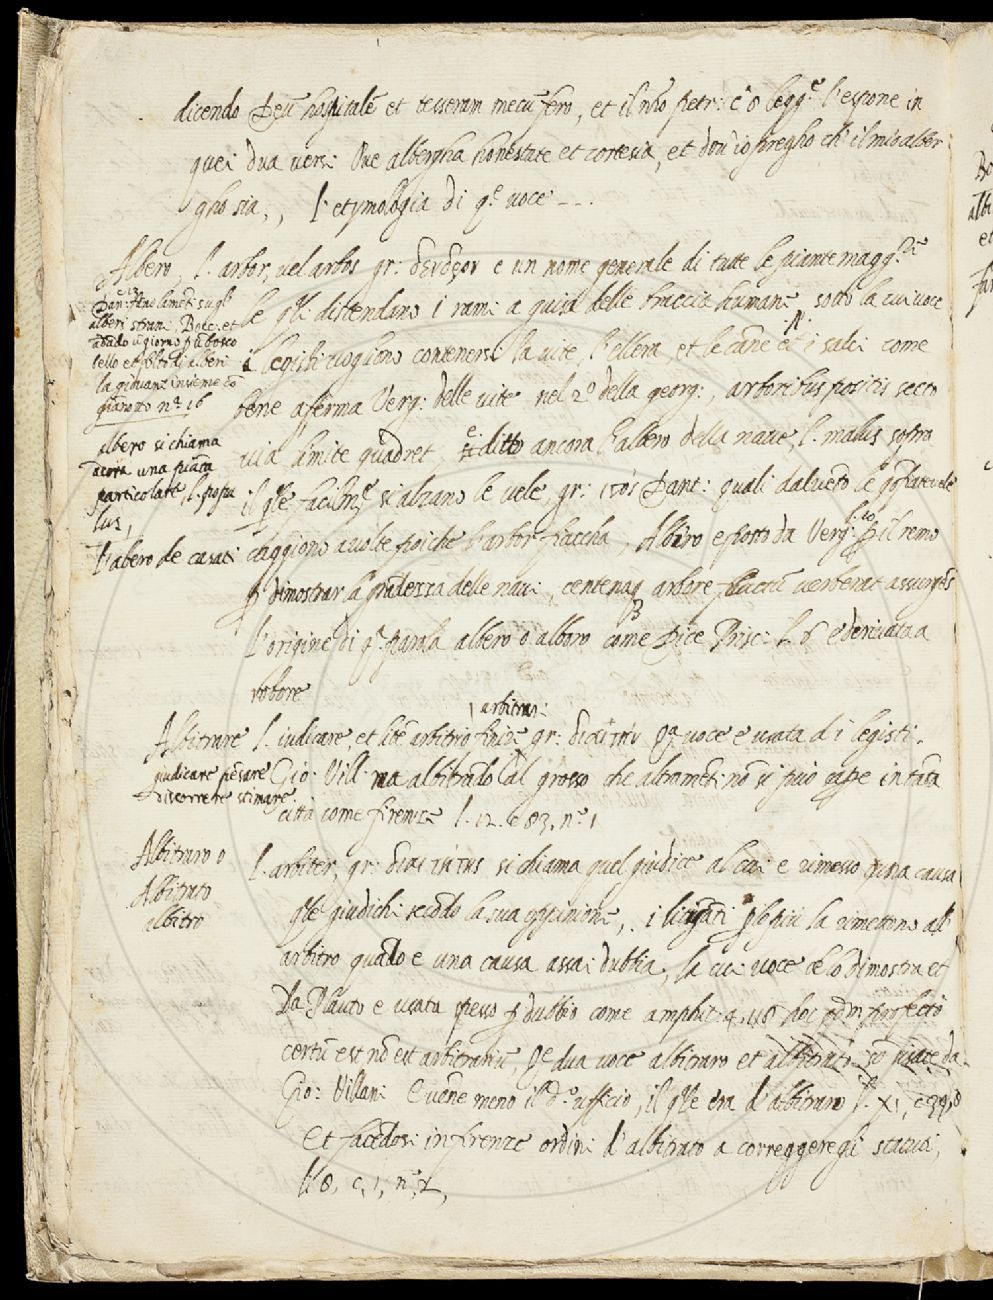 dicendo Deũ hospitalẽ et tesseram mecũ fero, et il nr̃o petr: c̃ o legg.e l'espone in
quei dua versi Ove albergha honestate et cortesia, et dov' io pregho ch' il mio alber
gho sia,, l'etymologia di q.a voce ---.
Albero, l. arbor, vel arbos gr: δένδρον e un nome generale di tutte le piante magg.ri
le q̃li distendano i rami a guisa delle braccia humane, sotto la cui voce
i legisti vogliono contenersi la vite l'ellera et le cãne et i salci come
bene aferma Verg: delle vite nel 2º della georg:, arboribus positis secto
via limite quadret, è ditto ancora l'albero della nave, l. malus, sopra
il q̃le facilm.te si alzano le vele, gr: ἱστός Dant: quali dal vẽto le gõfiate vele
caggiono avolte poiche l'arbor fiaccha, Albero e posto da Verg: l. 10 p̃ il remo
p̃ dimostrar la grãdezza delle navi, centenaq̃ arbore fluctũ verberat assurgẽs
l'origine di q.a parola albero o alboro come dice Prisc: l. 6 e derivata a
robore
Dan: c. 13 fãno lamẽti su gl'
alberi strani, Bocc: et
andado ũ giorno p̃ ũ bosco
cello et folto di alberi
la giovane insieme cõ
giãnotto nº. 16
albero si chiama
ãcora una piãta
particolare l. popu
lus,
l'albero de casati
Albitrare l. iudicare, et litẽ arbitrio finire arbitrari gr: διαιτᾶν q.a voce e usata d i legisti.
giudicare pẽsare
discorrere stimare
Gio: Vill: ma albitrãdo al grosso che altramẽti nõ si può sape in tãta
città come firenze l. 12. c 83. nº. 1
Albitraro o
Albitrato
albitro
l. arbiter, gr: διαιτητής si chiama quel giudice al cui e rimesso q̃na causa
q̃le giudichi secõdo la sua oppinione, i litigãti p̃ lo più la rimettono all'
arbitro quãdo e una causa assai dubbia, la cui voce ce lo dimostra et
da Plauto e usata spesso p̃ dubbio come amphit: hoc q̃dm profecto
certũ est nõ est arbitrariũ, q.e dua voce albitraro et albitrati sõ usate da
Gio: Villani E vẽne meno il d.º ufficio, il q̃le era l'albitraro l. XI, c 39,
Et facẽdosi in firenze ordini l'albitrato a correggere gli statuti,
l. 8, c, 1, nº. 2,